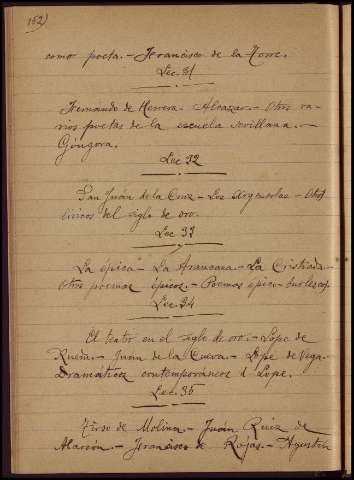 152)
como poeta.- Francisco de la Torre.
Lec. 31
Fernando de Herrera. Alcazar.- Otros va-
rios poetas de la escuela sevillana.-
Góngora.
Lec 32
San Juan de la Cruz - Los Argensolas - Otros
líricos del siglo de oro.
Lec 33
La épica - La Araucana.- La Cristiada.
Otros poemas épicos.- Poemas épico-burlescos.
Lec 34
El teatro en el siglo de oro.- Lope de
Rueda.- Juan de la Cueva.- Lope de Vega.
Dramáticos contemporáneos á Lope.
Lec. 35
Tirso de Molina.- Juan Ruiz de
Alarcón.- Francisco de Rojas.- Agustín